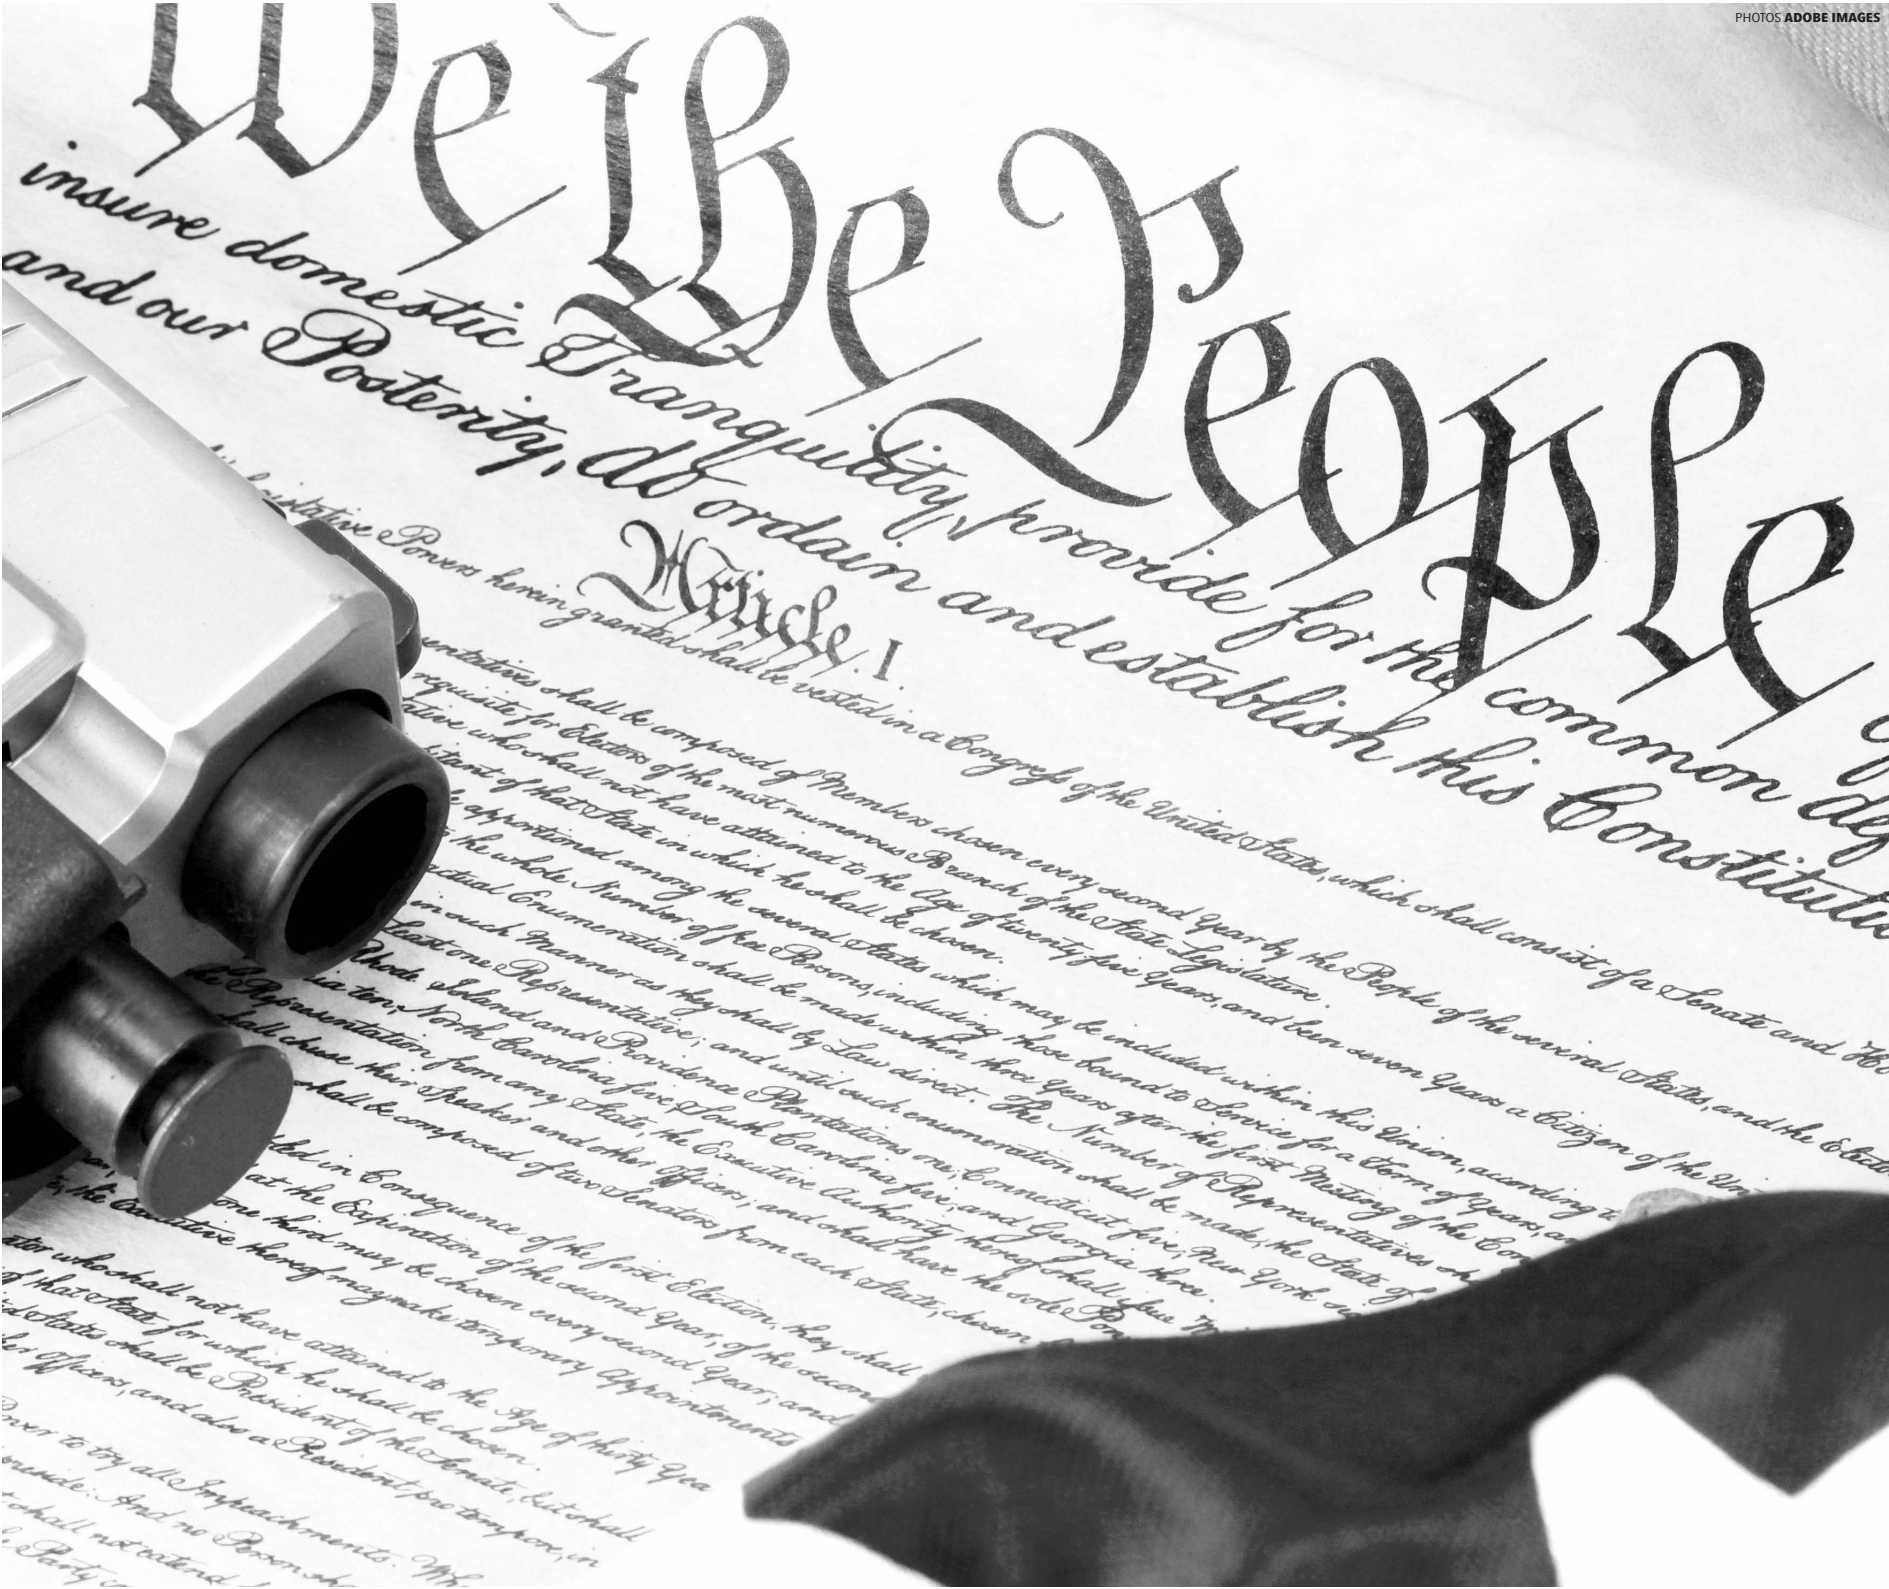 PHOTOS ADOBE IMAGES
We the People
insure domestic Tranquility, provide for the common def
and our Posterity, do ordain and establish this Constituti
Article. I.
Legislative Powers herein granted shall be vested in a Congress of the United States, which shall consist of a Senate and Ho
entatives shall be composed of Members chosen every second Year by the People of the several States, and the Elector
requisite for Electors of the most numerous Branch of the State Legislature.
tative who shall not have attained to the Age of twenty five Years, and been seven Years a Citizen of the Un
bitant of that State in which he shall be chosen.
e apportioned among the several States which may be included within this Union, according to
the whole Number of free Persons, including those bound to Service for a Term of Years, an
actual Enumeration shall be made within three Years after the first Meeting of the Con
in such Manner as they shall by Law direct. The Number of Representatives sh
Least one Representative; and until such enumeration shall be made, the State of
Rhode Island and Providence Plantations one, Connecticut five, New York si
ia ten, North Carolina five, South Carolina five, and Georgia three.
Representation from any State, the Executive Authority thereof shall issue W
hall chuse their Speaker and other Officers; and shall have the sole Pow
shall be composed of two Senators from each State, chosen
bled in Consequence of the first Election, they shall
at the Expiration of the second Year, of the second
one third may be chosen every second Year; and
the Executive thereof may make temporary Appointments
ator who shall not have attained to the Age of thirty Yea
of that State for which he shall be chosen.
d States shall be President of the Senate, but shall
er Officers, and also a President pro tempore, in
ower to try all Impeachments. Wh
preside: And no Person sha
shall not extend
Party